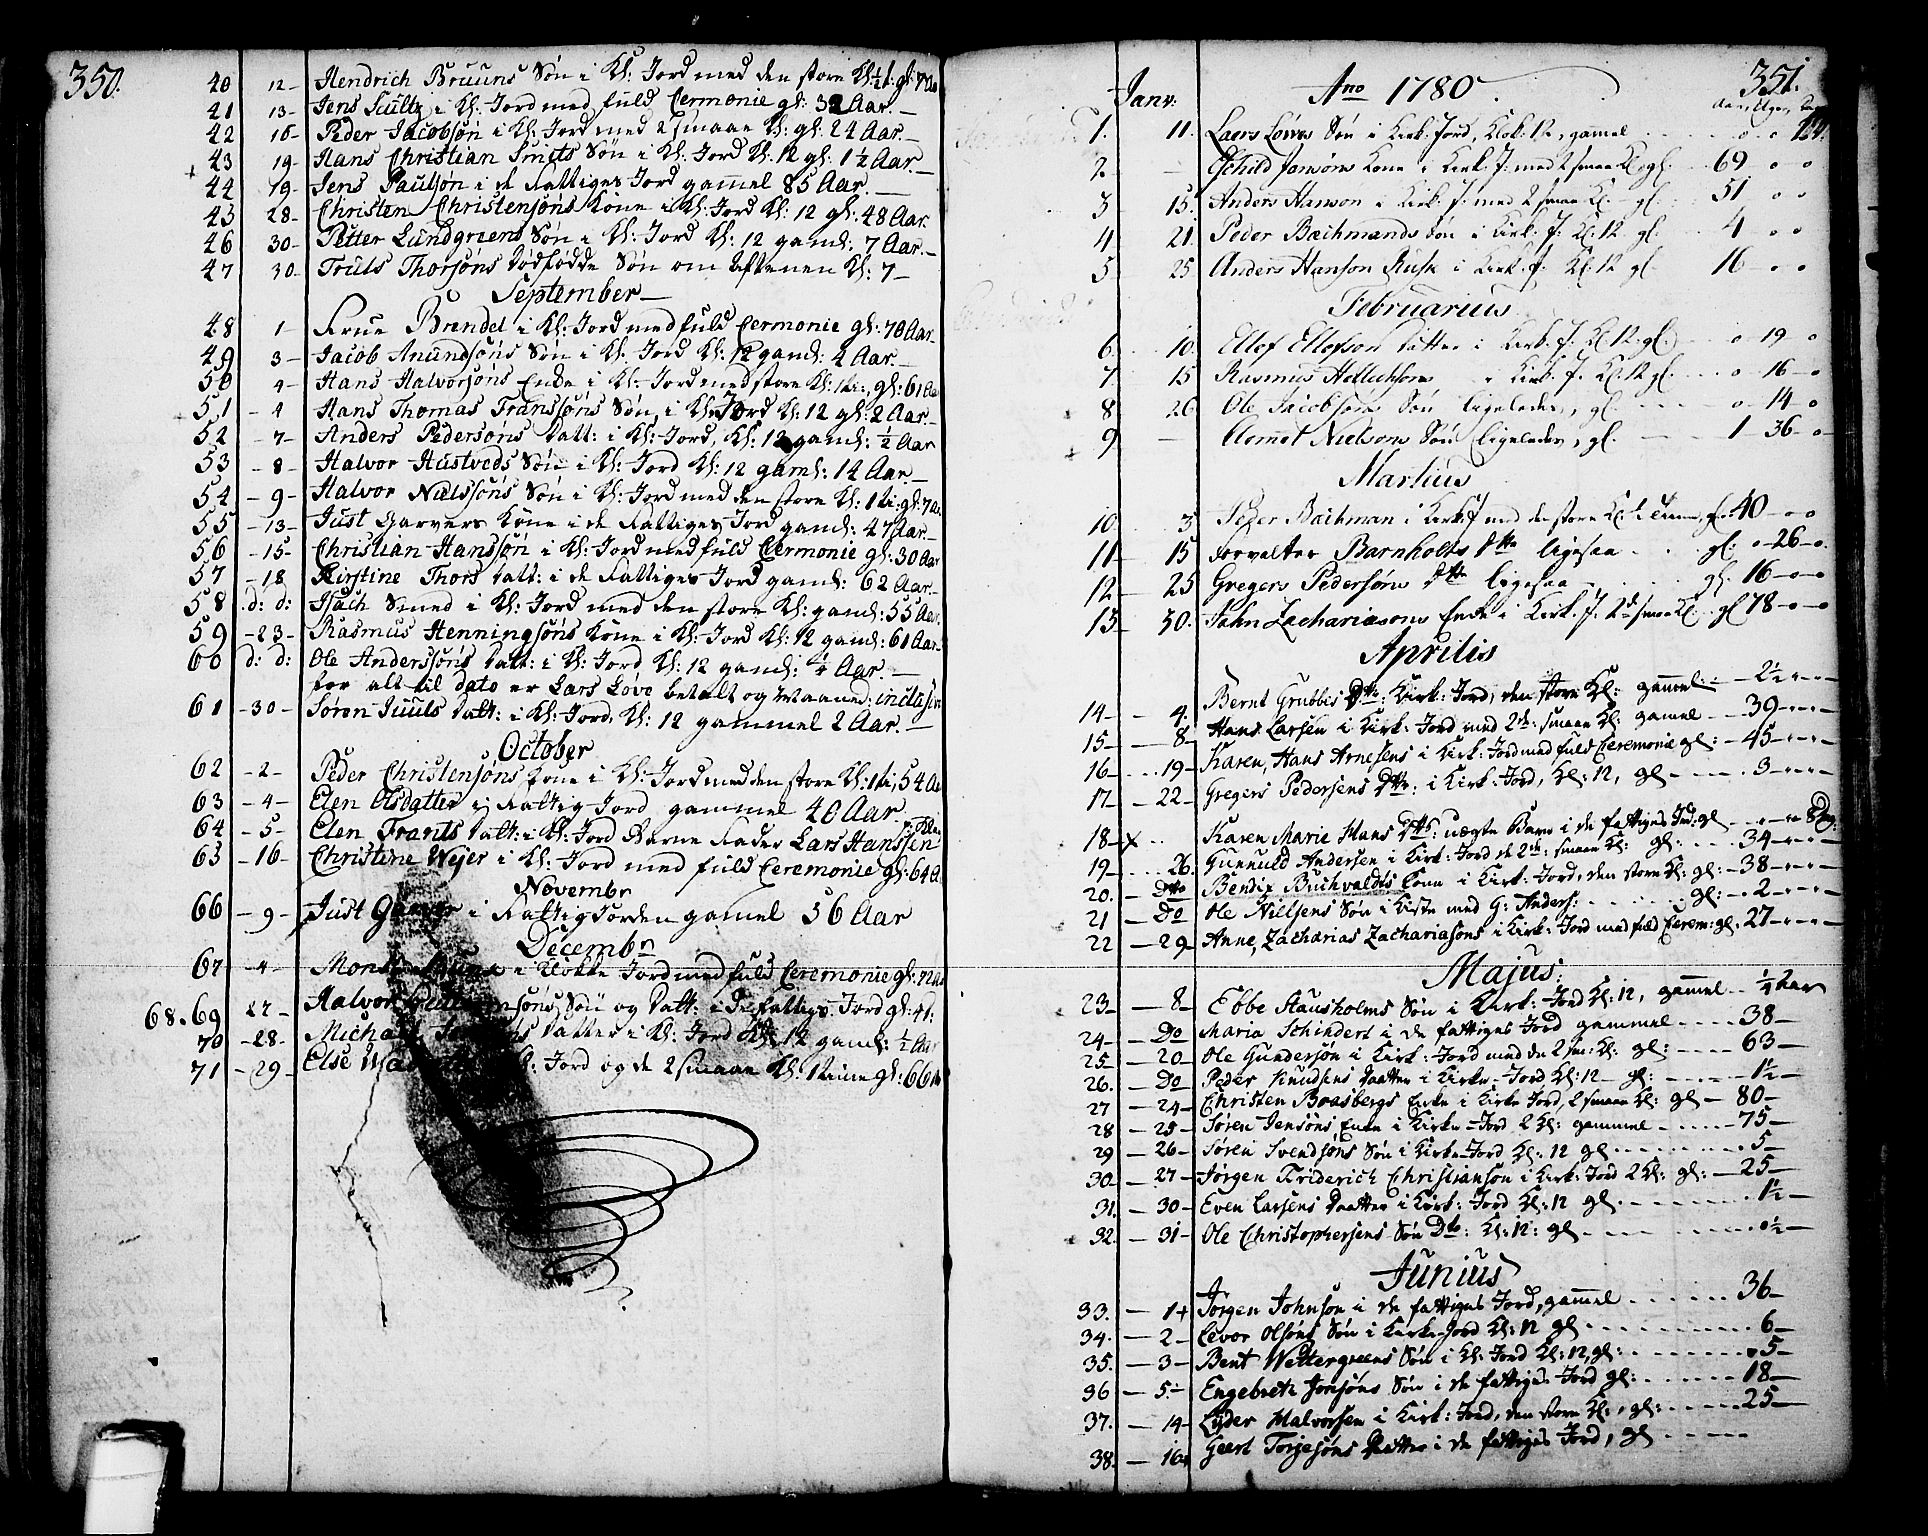 350.
40 12- Hendrich Bruuns Søn i Kl: Jord med den store Kl: ½ t: gl: 7 Aar
41 13- Jens Sultz i Kl: Jord med fuld Cermonie gl: 32 Aar.-
42 16- Peder Jacobsøn i Kl: Jord med 2 smaae Kl: gl: 24 Aar.-
43 19- Hans Christian Smits Søn i Kl: Jord Kl: 12 gl: 1½ Aar.-
44 19- Jens Paulsøn i de Fattiges Jord gammel 85 Aar.-
45 28- Christen Christensøns Kone i Kl: Jord Kl: 12 gl: 48 Aar.
46 30- Petter Lundgreens Søn i Kl: Jord Kl: 12 gaml: 7 Aar.-
47 30- Truls Thorsøns dødfødde Søn om Aftenen Kl: 7-
September-
48 1- Frue Brendel i Kl: Jord med fuld Cermonie gl: 70 Aar.
49 3- Jacob Anundsøns Søn i Kl: Jord Kl: 12 gaml: 4 Aar.-
50 4- Hans Halvorsøns Enke i Kl: Jord med store Kl: 1 ti:, gl: 61 Aar
51 -4 Hans Thomas Franssøns Søn i Kl: Jord Kl: 12 gl: 2 Aar.-
52 -7- Anders Pedersøns Datt: i Kl: Jord, Kl: 12 gaml: ½ Aar
53 -8- Halvor Hustveds Søn i Kl: Jord Kl: 12 gaml: 14 Aar.-
54 -9- Halvor Nielssøns Søn i Kl: Jord med den store Kl: 1 ti: gl: 7 Aar.
55 -13- Just Garvers Kone i de Fattiges Jord gaml: 47 Aar.-
56 -15- Christian Hanssøn i Kl: Jord med fuld Cermonie gl: 30 Aar
57 -18 Kirstine Thors Datt: i de Fattiges Jord gaml: 62 Aar.-
58 d: d: Isach Smed i Kl: Jord med den store Kl: gaml: 55 Aar.
59 -23- Rasmus Henningsøns Kone i Kl: Jord Kl: 12 gaml: 61 Aar.
60 d: d: Ole Anderssøns Datt: i Kl: Jord Kl: 12 gaml: ¼ Aar.-
for alt til dato er Lars Løve betalt og Maaned: inclusive
61 -30- Søren Juuls Datt: i Kl: Jord, Kl: 12 gammel 2 Aar.-
October
62 -2- Peder Christensøns Kone i Kl: Jord med den store Kl: 1 ti:, 54 Aar
63 -4- Elen Olsdatter i Fattig Jord gammel 40 Aar.
64 -5- Elen Frants Datt: i Kl: Jord Barne Fader Lars Hanssen
65 -16- Christine Wejer i Kl: Jord med fuld Ceremonie gl: 64 A
Novembr
66 -9- Just Garver i Fattig Jorden gamel 56 Aar
Decembr
67 -4- i Klokke Jord med fuld Ceremonie gl: 72 Aar
68.69 27- Halvor Søn og Datt: i de Fattiges Jord gl: 41:
70 -28- Michael Datter i Kl: Jord Kl: 12 gaml: ½ Aar
71 -29- Else Jord og de 2 smaae Kl: 1 time gl: 66 Aar
351.
Janv: Ano 1780
Aar. Uger.
1. 11. Laers Løves Søn i Kirk: Jord, Klok: 12, gammel o o 14.
2 - Eschild Jonsøns Kone i Kirk: J: med 2 smaae Kl: gl: 69 o o
3 15. Anders Hanson i Kirk: J: med 2 smaae Kl: gl: 51 o o
4 21. Peder Bachmands Søn i Kirk: J: Kl: 12 gl: 4 o o
5 25 Anders Hanson Rusk i Kirk: J: Kl: 12 gl- 16 o o
Februarius
6 10. Ellef Ellefson Datter i Kirk: J: Kl: 12 gl: o 19 o
7 15 Rasmus i Kirk: J. Kl: 12 gl: o 16 o
8 26 Ole Jacobsons Søn ligeledes, gl. o 14 o
9 - Nielsons Søn ligeledes, gl. 1 36 o
Martius
10 3 Peder Bachman i Kirk: J med den store Kl: 1 time, gl: 40 - o - o
11 15 Forvalter Barnholts Dtto ligesaa gl: o - 26 - o
12 25 Gregers Pedersøns Dtto ligesaa gl: 16 - o - o
13 30. John Zachariasons Enke i Kirk: J. 2de smaae Kl: gl 78 - o - o
Aprilis
14 4. Bernt Grubbes Dtr: Kirk: Jord, den store Kl: gammel: 2½
15 8- Hans Larsen i Kirk: Jord med 2de: smaae Kl: gamel 39
16 19- Karen, Hans Arnesens i Kirk: Jord med fuld Ceremonie gl: 45
17 22- Gregers Pedersens Dtr: i Kirk: Jord, Kl: 12, gl 3
18 x Karen Marie Hans Dtts: uægte Barn i de fattiges Jord gl 8 Dag:
19 26. Gunnuld Andersen i Kirk: Jord de 2de: smaae Kl: gl: 34
20. Dto Bendix Buchvaldts Kone i Kirk: Jord, den store Kl: gl: 38
21 Do Ole Nielsens Søn i Kiste med G: Anders: gl: 2
22 29 Anne, Zacharias Zachariasøns i Kirk: Jord med fuld Cerem: gl. 27
Majus.
23 8- Ebbe Stausholms Søn i Kirk: Jord Kl: 12, gammel ¼ Aar
24 Do Maria Schindert i de fattiges Jord gammel 38
25 20 Ole Gundersøn i Kirk: Jord med de 2 sm: Kl: gl: 63
26. Do Peder Knudsens Daatter i Kirke-Jord Kl: 12 gl: 1½
27 24 Christen Boasbergs Enke i Kirke Jord, 2 smaae Kl: gl 80
28 25 Søren Jensøns Enke i Kirke-Jord 2 Kl: gammel 75
29 26 Søren Svendsøns Søn i Kirke-Jord Kl: 12 gl 5
30 27 Jørgen Friderich Christiansøn i Kirk: Jord 2 Kl: gl: 25
31. 30 Even Larsens Daatter i Kirk: Jord Kl: 12 gl 1½
32. 31 Ole Christophersens Søn Dto: Kl: 12: gl o½
Junius
33. 1+ Jørgen Johnsøn i de fattiges Jord, gammel 36
34. 2 Levor Olsøns Søn i Kirke-Jord Kl: 12 gl 6
35. 3 Bent Wettergreens Søn i Kl: Jord Kl: 12, gl: 5
36 5 Engebreth Jonsøns Søn i de fattiges Jord gl: 18
37. 14 Lyder Halvorsen i Kirk: Jord, den store Kl:, gl: 25
38. 16 Geert Torjesøns Datter i de fattiges Jord, gl